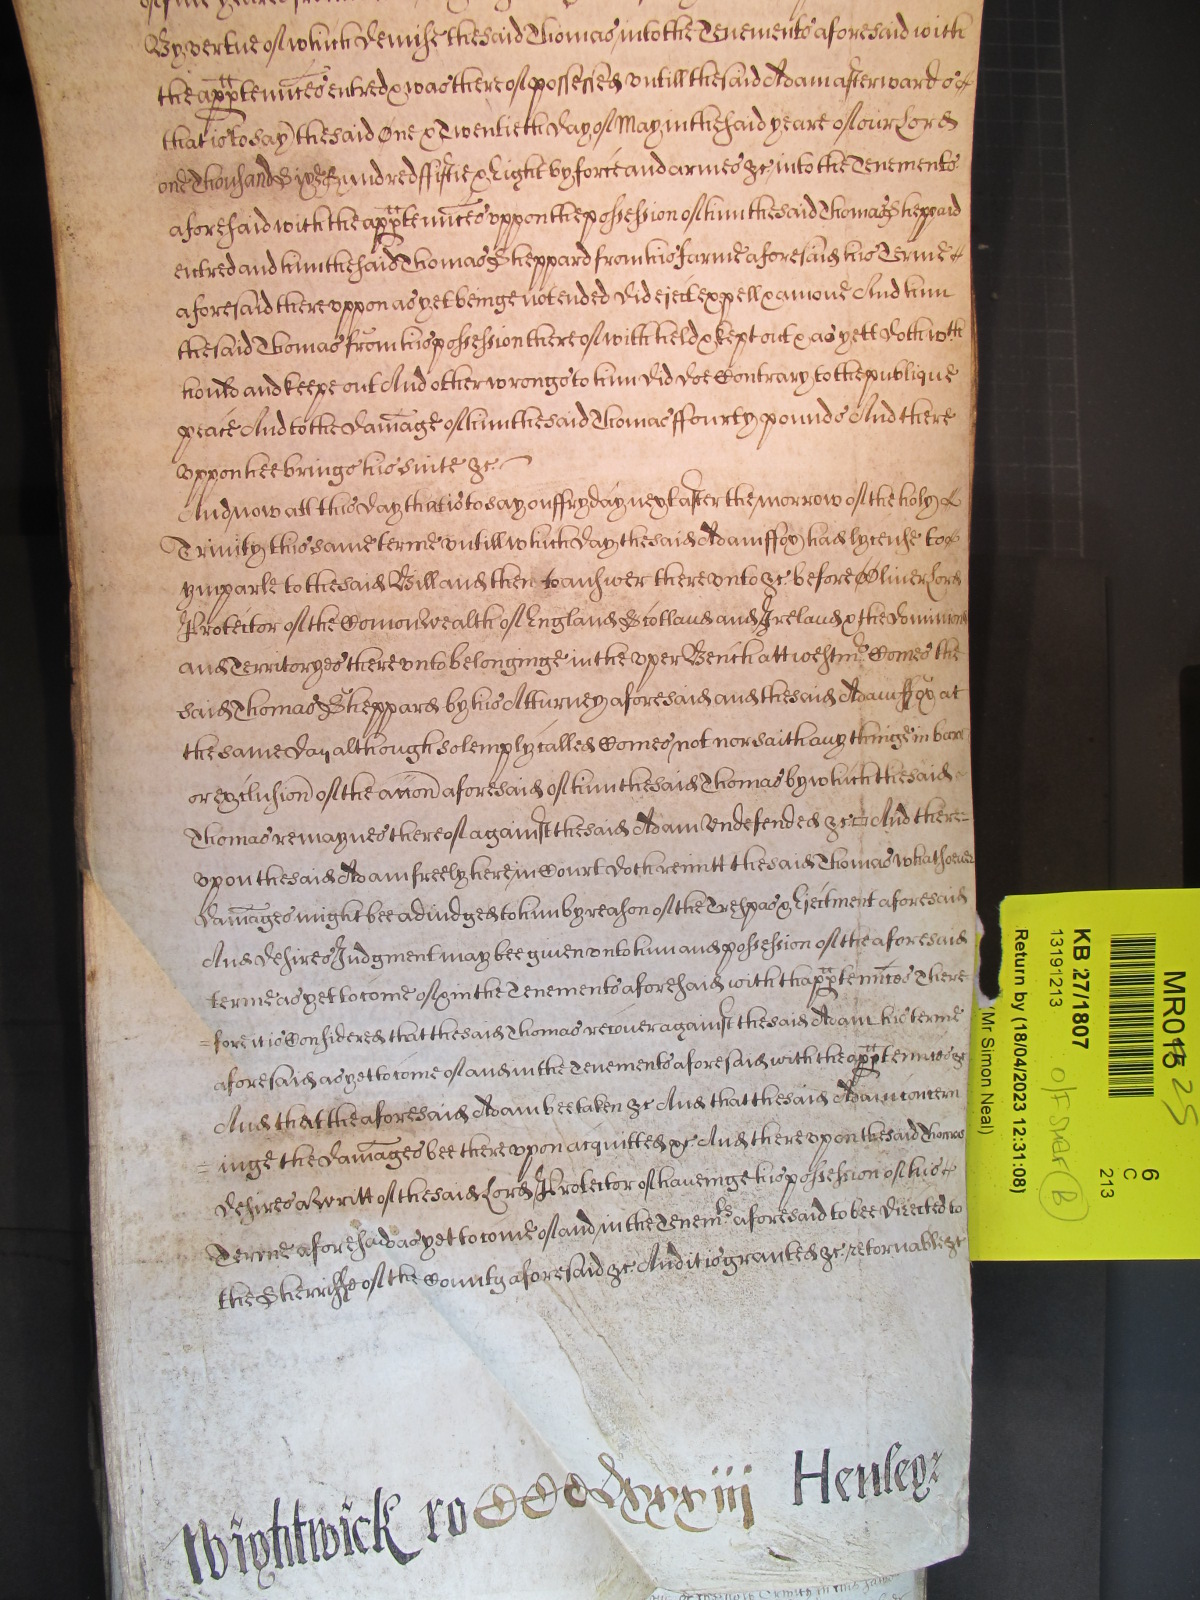 By vertue of which demise the said Thomas into the Tenements aforesaid with
the apptennces entred & was thereof possessed untill the said Adam afterwards
that is to say the said One & Twentieth day of May in the said yeare of our Lord
one Thousand Six Hundred ffiftie & Eight by force and armes &c into the Tenements
aforesaid with the apptennces uppon the possession of him the said Thomas Sheppard
entred and him the said Thomas Sheppard from his farme aforesaid his Terme
aforesaid there uppon as yet beinge not ended did eject expell & amove And him
the said Thomas from his possession thereof withheld & kept out & as yett doth wth
hould and keepe out And other wrongs to him did doe Contrary to the publique
peace And to the damage of him the said Thomas ffourty pounds And there
uppon hee brings his suite &c
And now att this day that is to say on ffryday next after the morrow of the holy
Trinity this same terme untill which day the said Adam ffox had lycense to
ymparle to the said Bill and then to answer there unto &c before Oliver Lord
Protector of the Comonwealth of England Scotland and Ireland & the dominions
and Territoryes there unto belonginge in the uper Bench att westmr Comes the
said Thomas Sheppard by his Atturney aforesaid and the said Adam ffox at
the same day although solemply called Comes not nor saith any thinge in barr
or exclusion of the accion aforesaid of him the said Thomas by which the said
Thomas remaynes thereof against the said Adam Undefended &c And there=
upon the said Adam freely here in Court doth remitt the said Thomas whatsoever
damages might bee adiudged to him by reason of the Trespas & Ejectment aforesaid
And desires Judgment may bee given unto him and possession of the aforesaid
terme as yet to come of & in the Tenements aforesaid with thapptennces There
=fore it is Considered that the said Thomas recover against the said Adam his terme
aforesaid as yet to come of and in the Tenements aforesaid with the apptennces &c
And that the aforesaid Adam bee taken &c And that the said Adam concern
=inge the damages bee there upon acquitted &c And there upon the said Thomas
desires a Writt of the said Lord Protector of haveinge his possession of his
Terme aforesaid as yet to come of and in the Tenemts aforesaid to bee directed to
the Sherriffe of the County aforesaid &c And it is granted &c retornable &c
Wightwick ro CCCClxxxiij Henley
MR015
25
6
C
213
KB 27/1807
13191213
O/F Shelf B
Return by (18/04/2023 12:31:08)
(Mr Simon Neal)